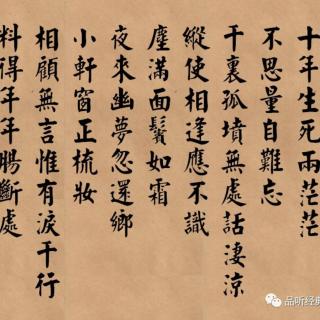 十年生死兩茫茫
不思量自難忘
千裏孤墳無處話淒涼
縱使相逢應不識
塵滿面鬢如霜
夜來幽夢忽還鄉
小軒窗正梳妝
相顧無言惟有淚千行
料得年年腸斷處
品听经典